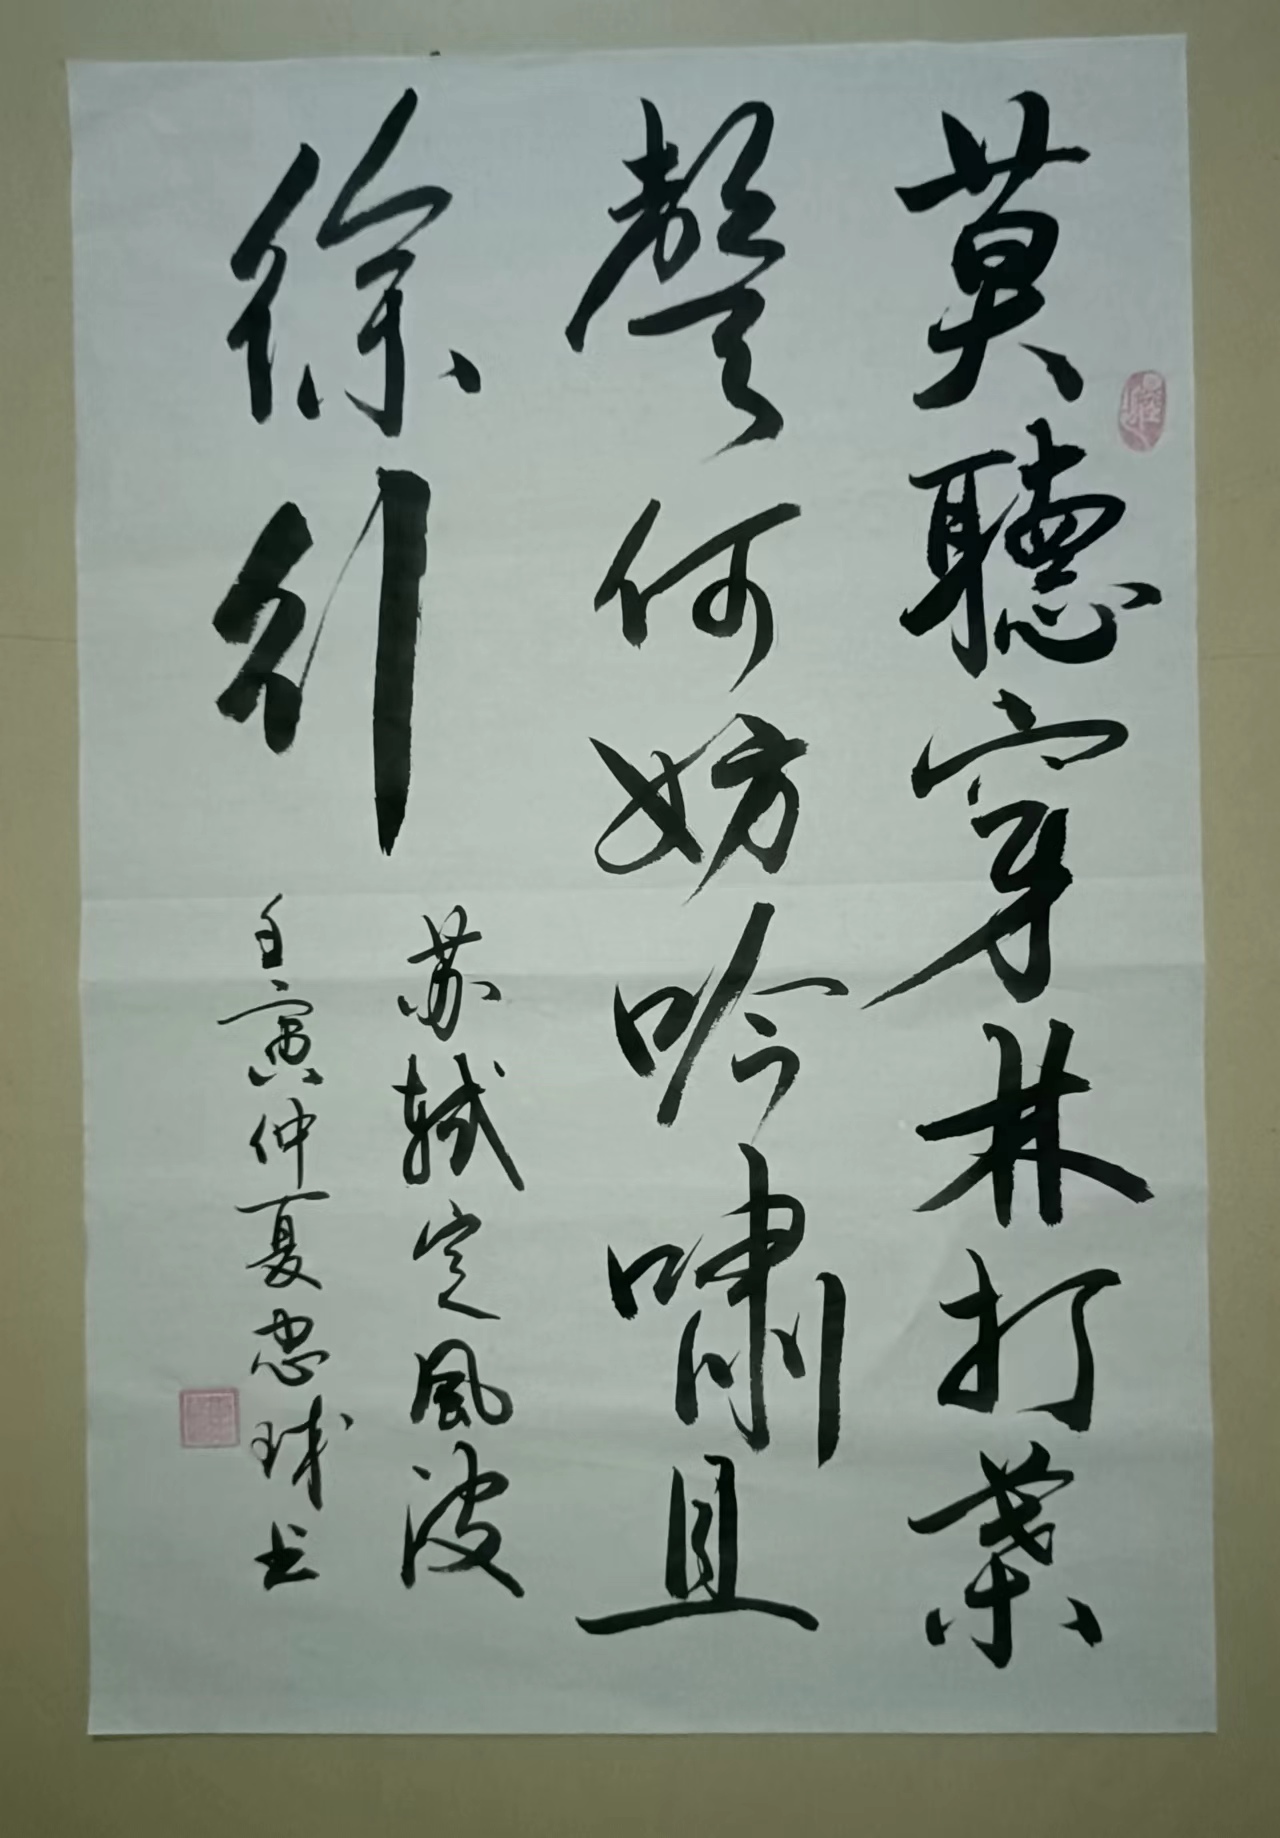 莫聽穿林打葉
聲何妨吟嘯且
徐行
苏軾定風波
壬寅仲夏忠球书